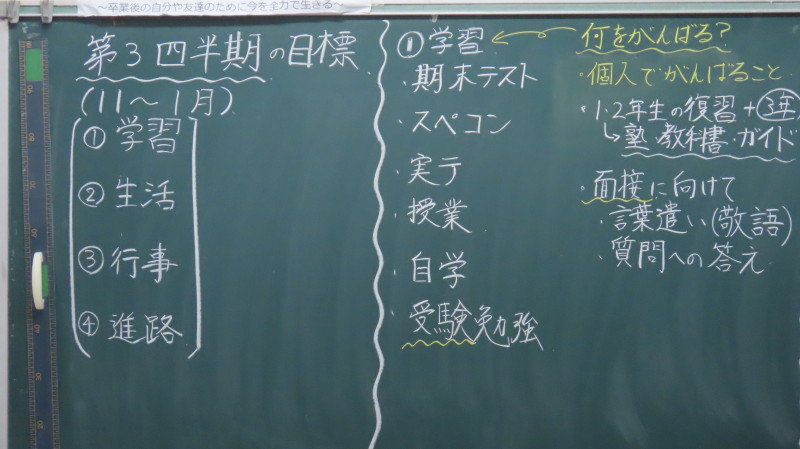 ～卒業後の自分や友達のために今を全力で生きる～
第3四半期の目標
(11～1月)
① 学習
② 生活
③ 行事
④ 進路
① 学習
・期末テスト
・スペコン
・実テ
・授業
・自学
・受験勉強
何をがんばる？
・個人でがんばること
・1・2年生の復習+3年
↳塾・教科書・ガイド
・面接に向けて
・言葉遣い(敬語)
・質問への答え